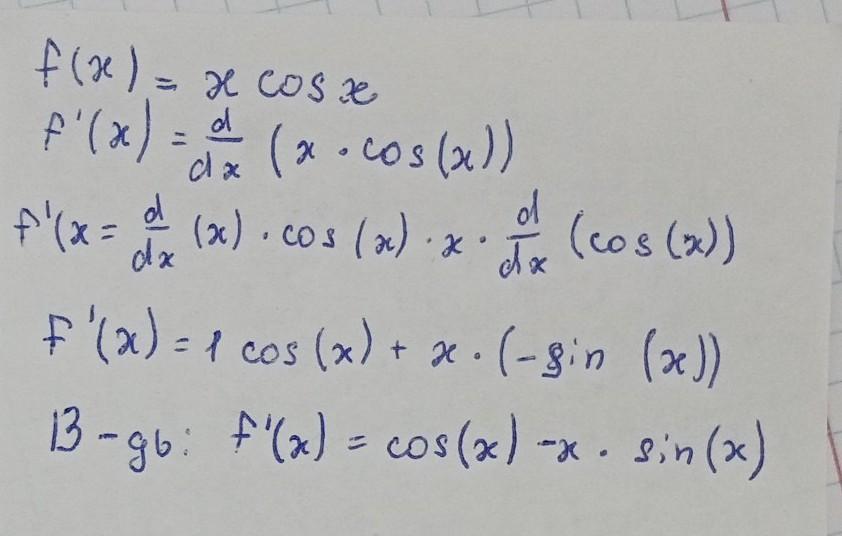 f(x) = x cos x
f'(x) = d/dx (x · cos(x))
f'(x = d/dx (x) · cos(x) · x · d/dx (cos(x))
f'(x) = 1 cos(x) + x · (-sin (x))
В-дь: f'(x) = cos(x) -x · sin(x)